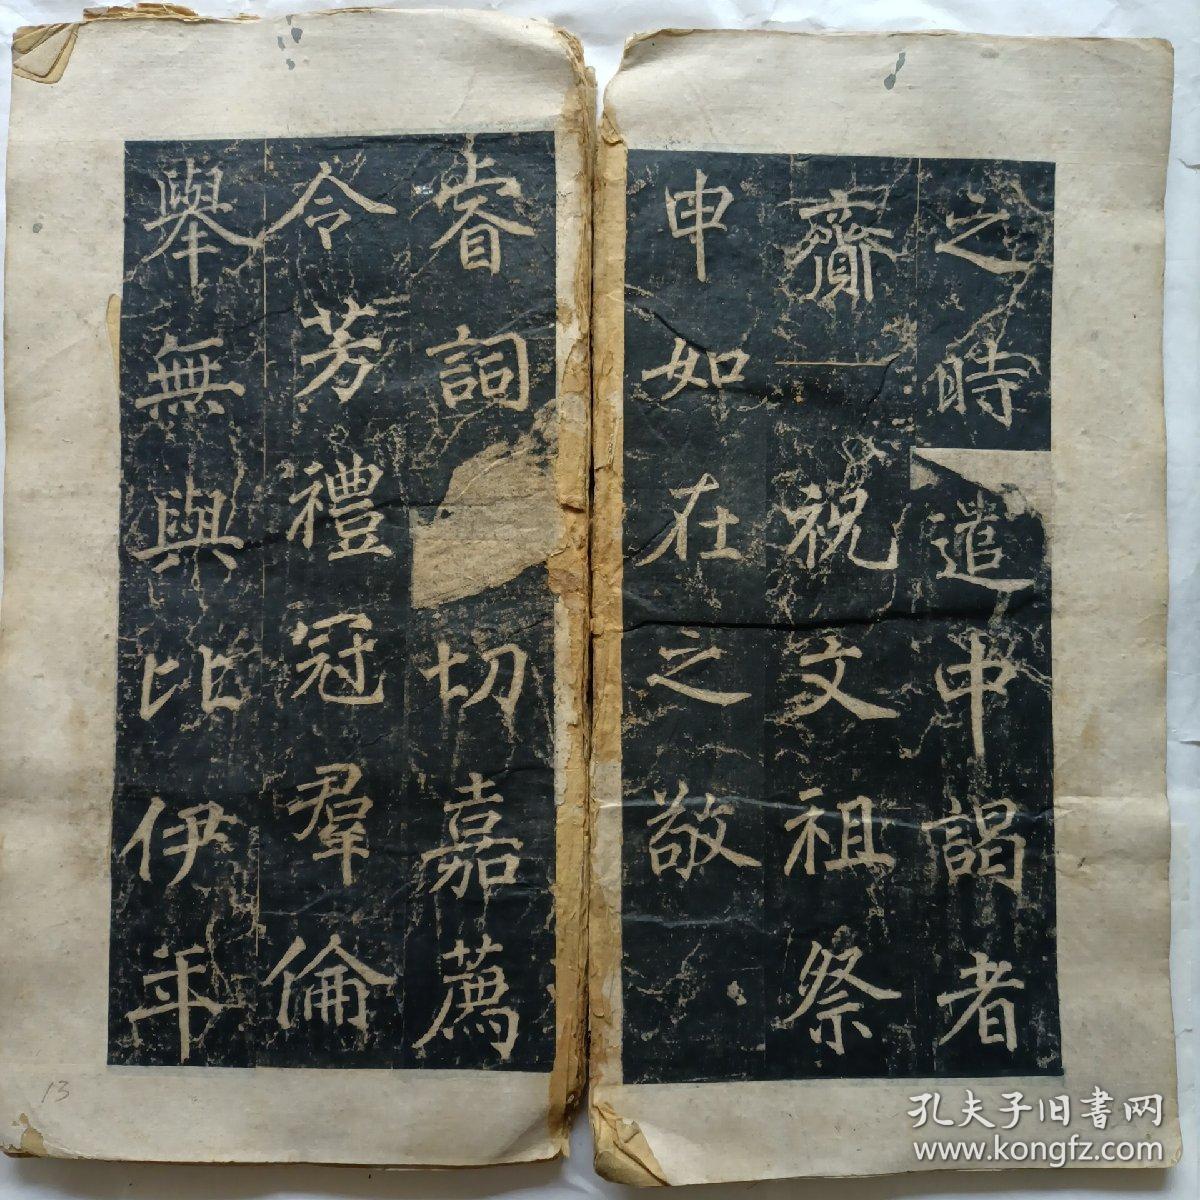 之時遣中謁者
齎一祝文祖祭
申如在之敬
睿詞切嘉薦
令芳禮冠羣倫
舉無與比伊年
13
孔夫子旧書网
www.kongfz.com